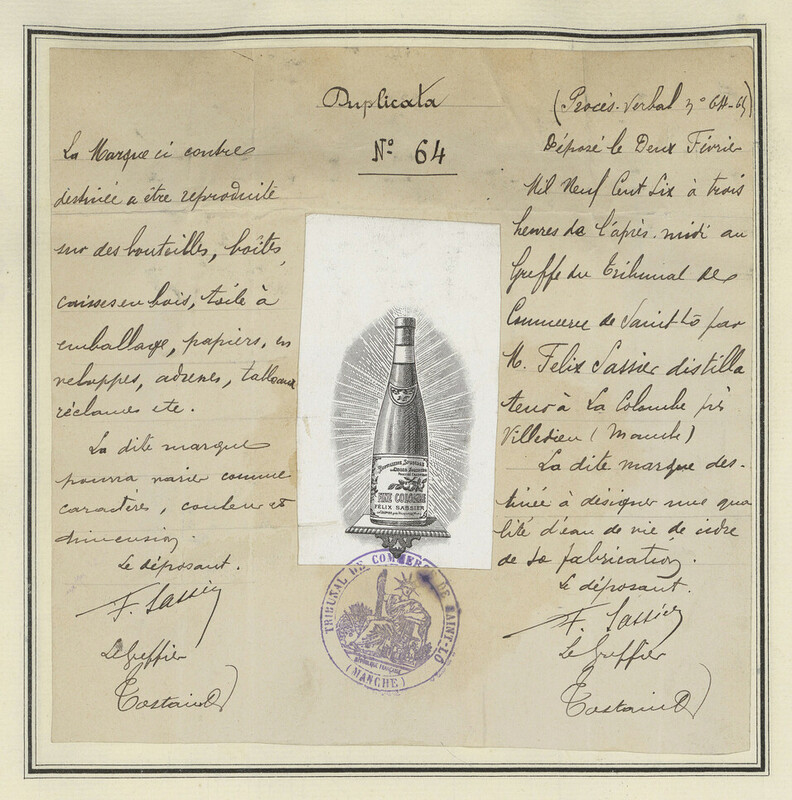 Duplicata
Nº 64
La Marque ci contre
destinée a être reproduite
sur des bouteilles, boîtes,
caisses en bois, toile à
emballage, papiers, en
veloppes, adresses, tableaux
réclames etc.
La dite marque
pourra varier comme
caractères, couleur et
dimension.
Le déposant.
F. Sassier
Le Greffier
Costaud
FINE COLOMBE
FELIX SASSIER
TRIBUNAL DE COMMERCE DE SAINT-LÔ
RÉPUBLIQUE FRANÇAISE
(MANCHE)
(Procès-Verbal nº 64-65)
Déposé le Deux Février
Mil Neuf Cent Six à trois
heures de l'après-midi au
Greffe du Tribunal de
Commerce de Saint-Lô par
M. Felix Sassier distilla
teur à La Colombe près
Villedieu (Manche)
La dite marque des-
tinée à désigner une qua
lité d'eau de vie de cidre
de sa fabrication.
Le déposant.
F. Sassier
Le Greffier